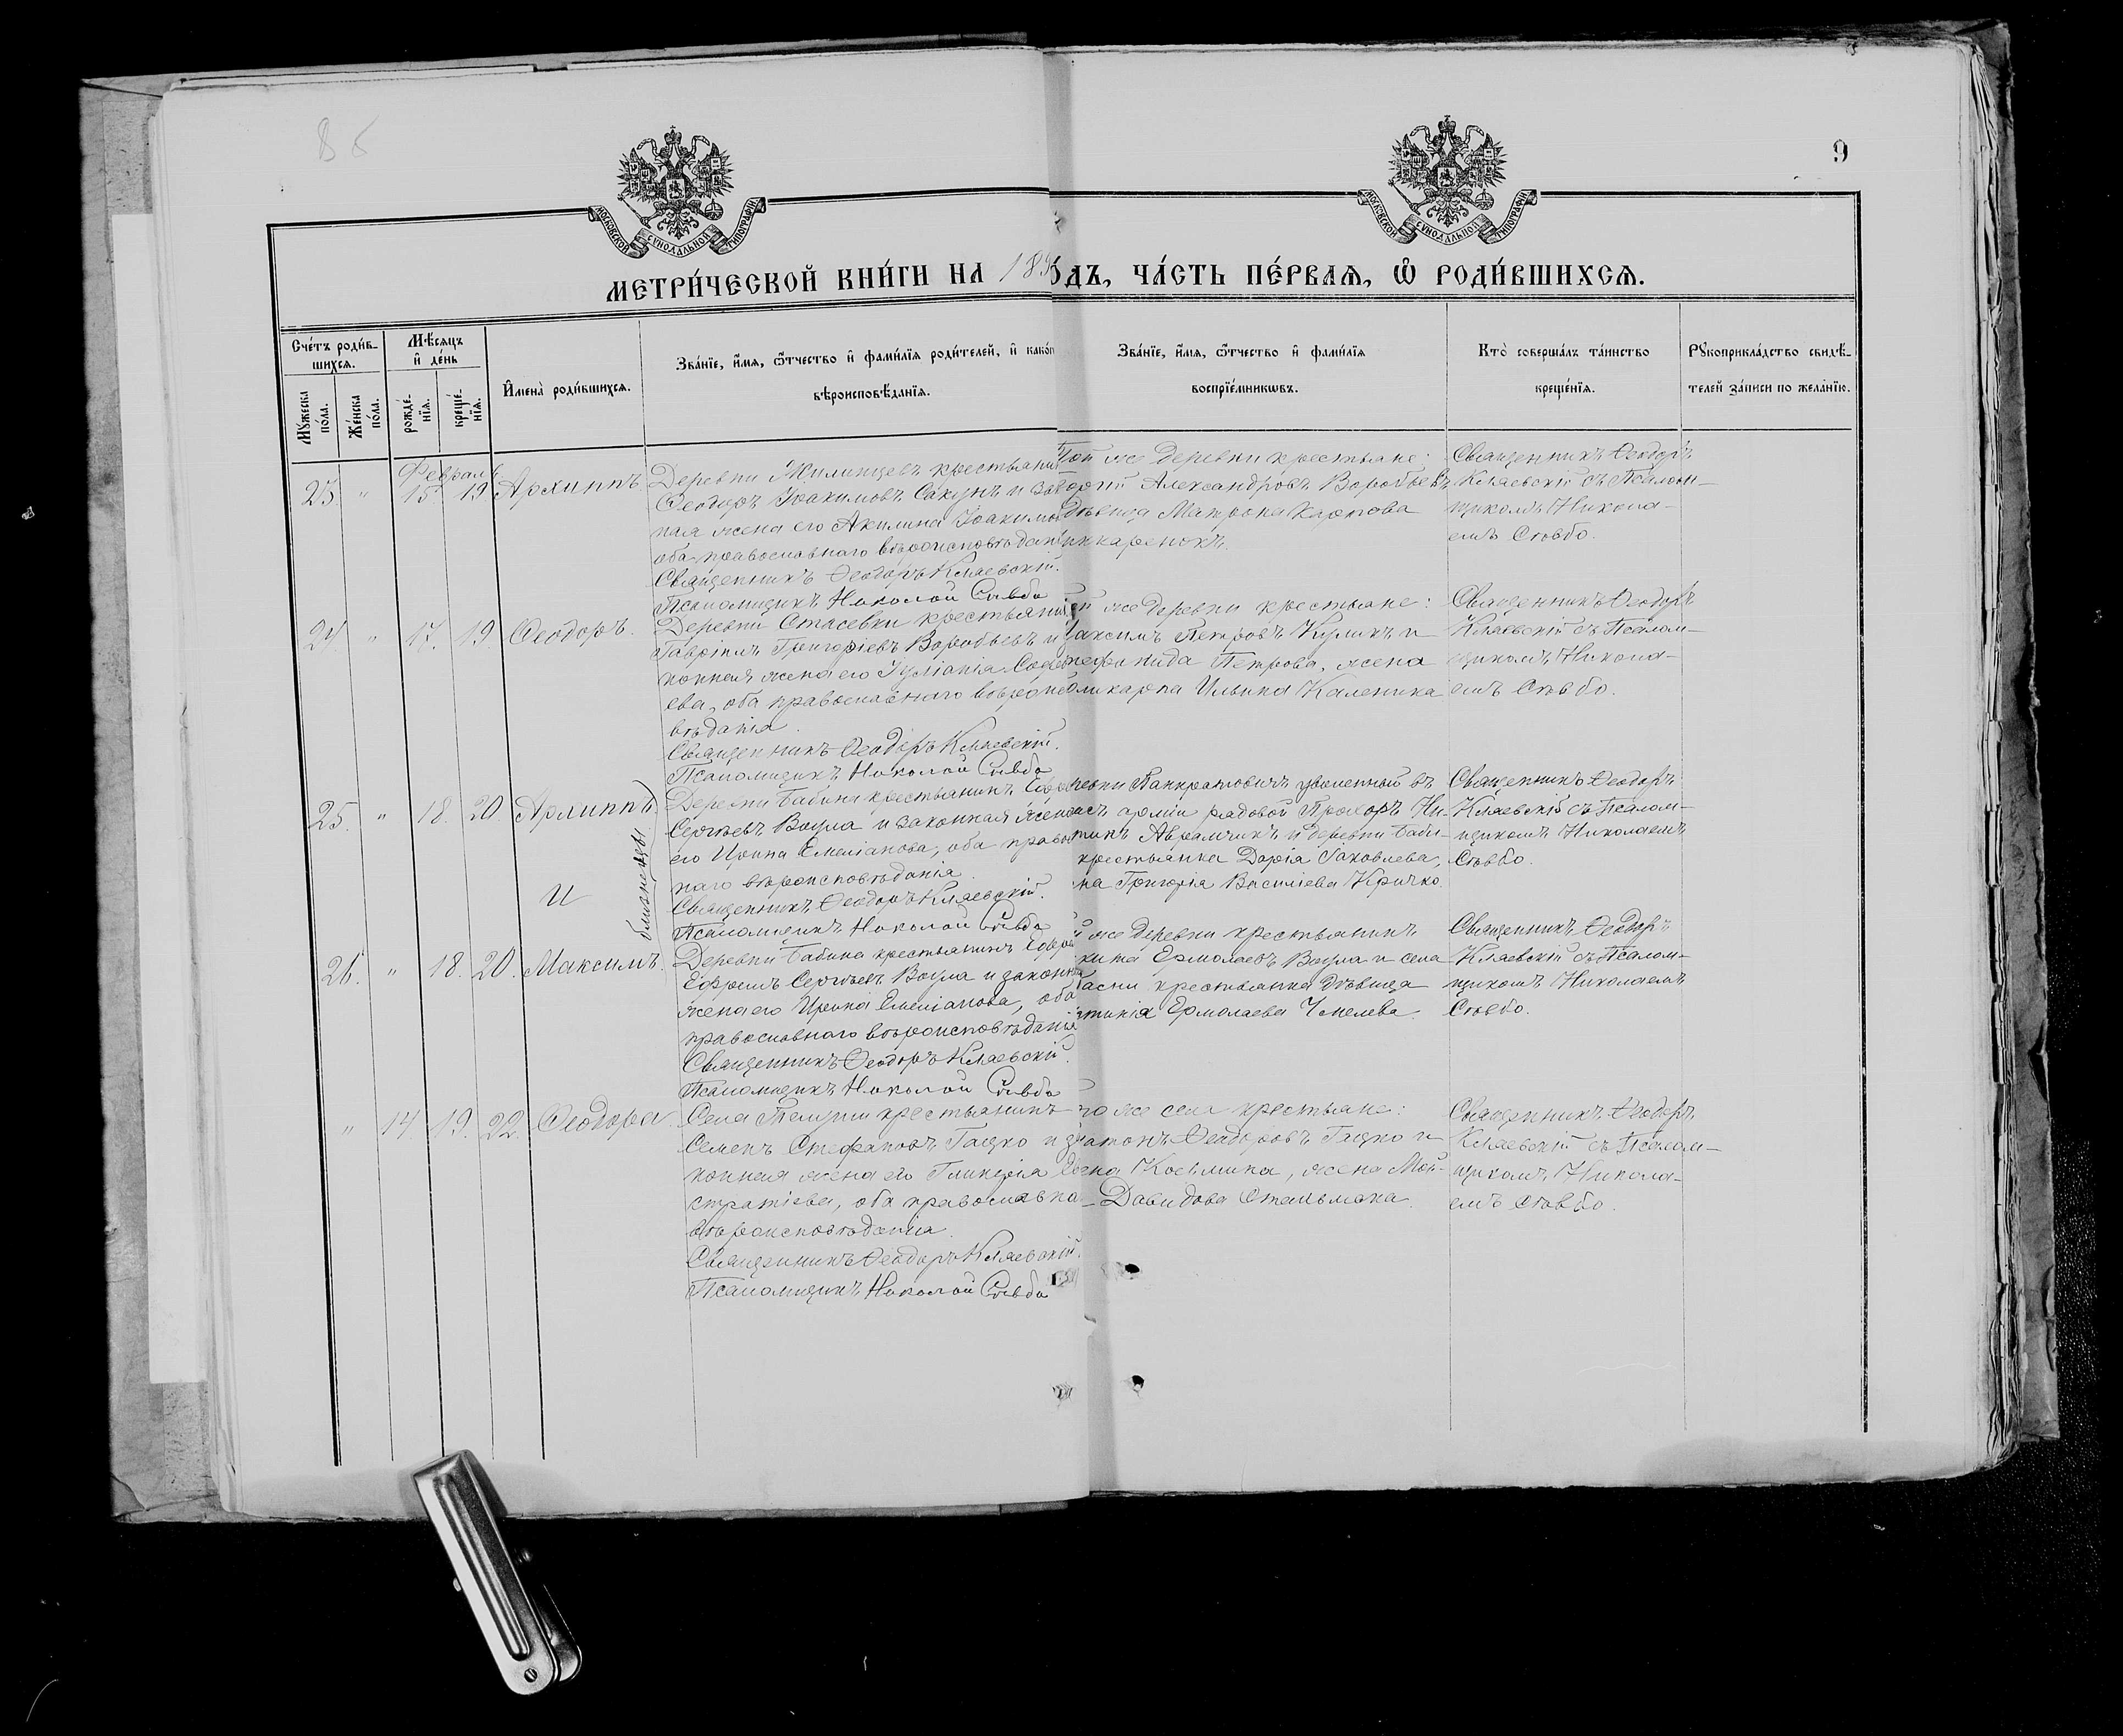 9
МОСКОВСКОЙ СУНОДАЛЬНОЙ ТИПОГРАФІИ
МОСКОВСКОЙ СУНОДАЛЬНОЙ ТИПОГРАФІИ
МЕТРИ́ЧЕСКОЙ КНИ́ГИ НА 189 ОДЪ, ЧА́СТЬ ПЕ́РВАѦ, Ѽ РОДИ́ВШИХСѦ.
Сче́тъ роди́в-
шихсѧ.
Мꙋ́жеска по́ла.
Же́нска по́ла.
Мѣ́сѧцъ
и҆ де́нь
рожде́-
нїѧ.
креще́-
нїѧ.
И҆мена̀ роди́вшихсѧ.
Зва́нїе, и҆́мѧ, ѻ҆́тчество и҆ фами́лїѧ роди́телей, и҆ како́г
вѣроисповѣ́данїѧ.
Зва́нїе, и҆́мѧ, ѻ҆́тчество и҆ фами́лїѧ
воспрїе́мникѡвъ.
Кто̀ соверша́лъ та́инство
креще́нїѧ.
Рꙋкоприкла́дство свидѣ́-
телей за́писи по жела́нїю.
Февраль
23. " 15. 19. Архиппъ
Деревни Жилинцевъ крестьянин
Ѳеодоръ Іоакимовъ Сакунъ и зак
ная жена его Акилина Іоакимов
оба православнаго вѣроисповѣдан
Священникъ Ѳеодоръ Кляевскій.
Псаломщикъ Николай Сѣвбо
Той же деревни крестьяне:
оргій Александровъ Воробьевъ
дѣвица Матрона Карпова
нкаренокъ.
Священникъ Ѳеодоръ
Кляевскій съ Псалом-
щикомъ Никола-
емъ Сѣвбо.
24. " 17. 19. Ѳеодоръ.
Деревни Стасевки крестьянин
Гавріилъ Григоріевъ Воробьевъ и
конная жена его Іуліанія Софо
ева, оба православнаго вѣроиспо
вѣданія.
Священникъ Ѳеодоръ Кляевскій.
Псаломщикъ Николай Сѣвбо
ой же деревни крестьяне:
аксимъ Петровъ Куликъ и
нефонида Петрова, жена
оликарпа Ильина Каленика
Священникъ Ѳеодоръ
Кляевскій съ Псалом-
щикомъ Никола-
емъ Сѣвбо.
25. " 18. 20. Архиппъ
и
близнецы
Деревни Бабина крестьянинъ Ефре
Сергѣевъ Воула и законная жена
его Ирина Емеліанова, оба правос
наго вѣроисповѣданія.
Священникъ Ѳеодоръ Кляевскій.
Псаломщикъ Николай Сѣвбо
ревни Панкратовичъ уволенный въ
асъ арміи рядовой Прохоръ Ни-
тинъ Аврамчикъ и деревни Баби-
крестьянка Дарія Іаковлева,
на Григорія Василіева Кричко.
Священникъ Ѳеодоръ
Кляевскій съ Псалом-
щикомъ Николаемъ
Сѣвбо.
26. " 18. 20. Максимъ.
Деревни Бабина крестьянинъ Ефрем
Ефремъ Сергѣевъ Воула и законна
жена его Ирина Емеліанова, оба
православнаго вѣроисповѣданія
Священникъ Ѳеодоръ Кляевскій.
Псаломщикъ Николай Сѣвбо
й же деревни крестьянинъ
кита Ермолаевъ Воула и села
крестьянка дѣвица
Ермолаева Чмелева.
Священникъ Ѳеодоръ
Кляевскій съ Псалом-
щикомъ Николаемъ
Сѣвбо.
" 14. 19. 22. Ѳеодора.
Села Телуши крестьянинъ
Семенъ Стефановъ Гацко и за
конная жена его Гликерія Ев
стратіева, оба православна
вѣроисповѣданія.
Священникъ Ѳеодоръ Кляевскій.
Псаломщикъ Николай Сѣвбо
го же села крестьяне:
атонъ Ѳеодоровъ Гацко и
на Косьмина, жена Мои-
Давидова Стельмака.
Священникъ Ѳеодоръ
Кляевскій съ Псалом-
щикомъ Никола-
емъ Сѣвбо.